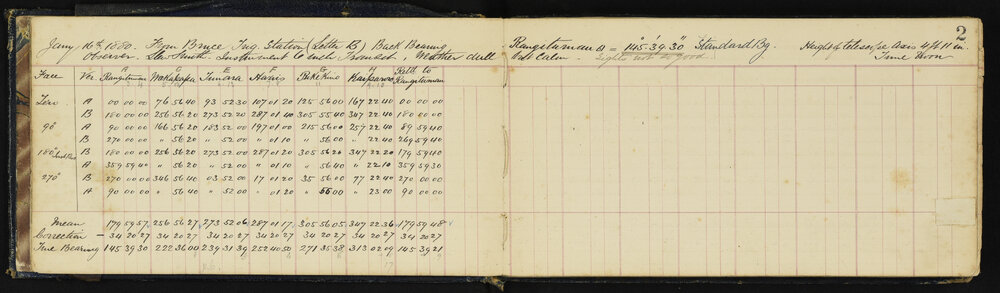 2
Jany 16th 1880. From Bruce Trig. Station (Letter B) Back Bearing Rangitumau = 145°.39'.30" Standard Bg. Height of telescope axis 4 ft 11 in.
Observer. Instrument 6 inch Weather dull but Calm. Lights not so good. Time Noon
Face Ver. Rangitumau Maharahara Harris Pukekino Retd to Rangitumau
Zero A 00 00 00 76 56 40 93 52 30 107 01 20 125 56 00 167 22 40 00 00 00
B 180 00 00 256 56 20 273 52 20 287 01 40 305 55 40 347 22 40 180 00 00
90° A 90 00 00 166 56 20 183 52 00 197 01 00 215 56 00 257 22 40 89 59 40
B 270 00 00 " 56 20 " 52 00 " 01 10 " 56 00 " 22 40 269 59 40
180° B 180 00 00 256 56 20 273 52 00 287 01 20 305 56 20 347 22 20 179 59 40
A 359 59 40 " 56 20 " 52 00 " 01 10 " 56 40 " 22 10 359 59 30
270° B 270 00 00 346 56 40 03 52 00 17 01 20 35 56 00 77 22 40 270 00 00
A 90 00 00 " 56 40 " 52 00 " 01 20 " 56 00 " 23 00 90 00 00
Mean 179 59 57 256 56 27 273 52 06 287 01 17 305 56 05 347 22 36 179 59 48
Correction — 34 20 27 34 20 27 34 20 27 34 20 27 34 20 27 34 20 27 34 20 27
True Bearing 145 39 30 222 36 00 239 31 39 252 40 50 271 35 38 313 02 09 145 39 21